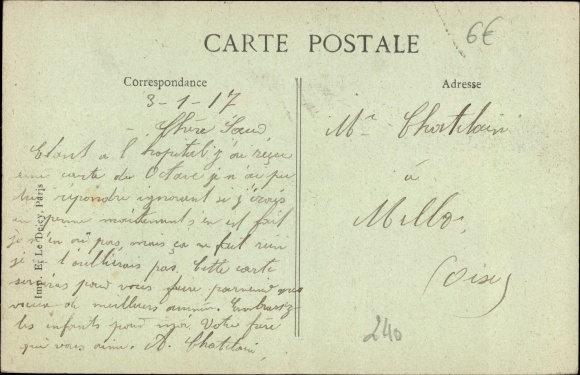 6€
CARTE POSTALE
Correspondance
Adresse
3-1-17
Chère Sœur,
Etant a l'hopital j'ai reçu
une carte de Octave je n ai pu
lui répondre ignorant si j'étais
en perme maintenant s'en est fait
je n'en ai pas, mais ça ne fait rien
je ne t'oublierais pas. Cette carte
servira pour vous faire parvenir mes
vœux de meilleurs année. Embrassez
les enfants pour moi. Votre frère
qui vous aime. A. Chatelain
Mr Chatelain
à
Mello
(Oise)
240
Imp. E. Le Deley, Paris